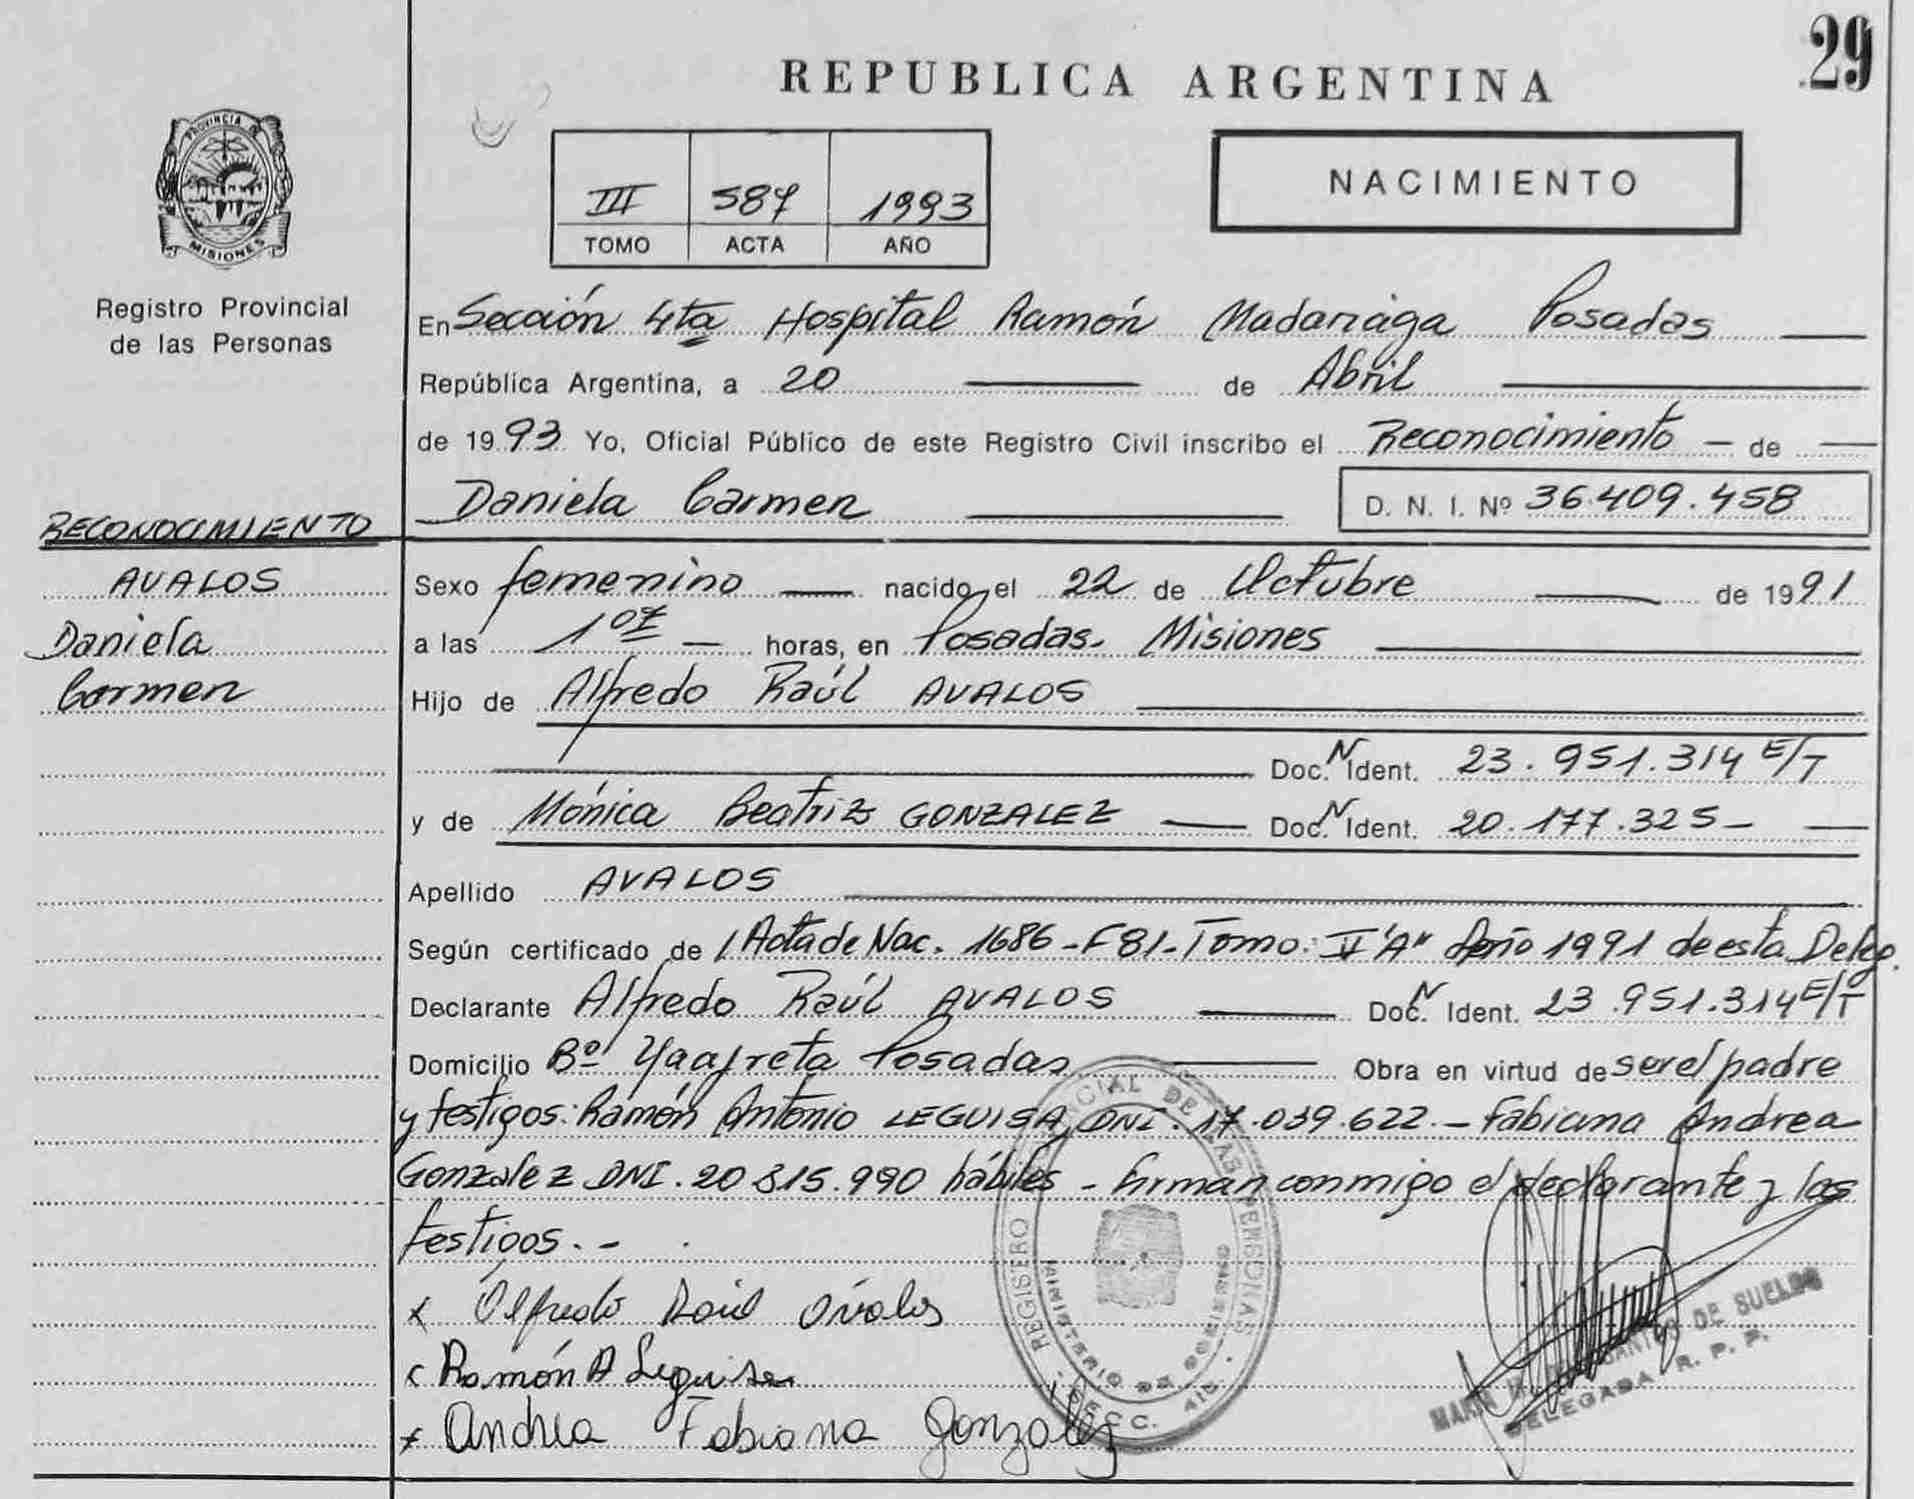 29
REPUBLICA ARGENTINA
PROVINCIA DE
MISIONES
III 587 1993
TOMO ACTA AÑO
NACIMIENTO
Registro Provincial
de las Personas
En Sección 4ta Hospital Ramón Madariaga Posadas
República Argentina, a 20 de Abril
de 1993 Yo, Oficial Público de este Registro Civil inscribo el Reconocimiento - de
Daniela Carmen D. N. I. Nº 36.409.458
RECONOCIMIENTO
AVALOS
Daniela
Carmen
Sexo femenino nacido el 22 de Octubre de 1991
a las 1 horas, en Posadas. Misiones
Hijo de Alfredo Raúl AVALOS
Doc. N Ident. 23.951.314 E/T
y de Mónica Beatriz GONZALEZ Doc. N Ident. 20.177.325-
Apellido AVALOS
Según certificado de Acta de Nac. 1686-F81-Tomo: II "A" Año 1991 de esta Deleg.
Declarante Alfredo Raúl AVALOS Doc. N Ident. 23.951.314 E/T
Domicilio Bº Posadas Obra en virtud de ser el padre
y testigos: Ramón Antonio LEGUISA, DNI. 17.039.622.- Fabiana Andrea
Gonzalez DNI. 20.815.990 hábiles - Firman conmigo el declarante y los
testigos.-
x Alfredo Raúl Avalos
Ramón A Leguisa
x Andrea Fabiana Gonzalez
REGISTRO PROVINCIAL DE LAS PERSONAS
MINISTERIO DE GOBIERNO
DE SUELDO
DELEGADA R. P. P.